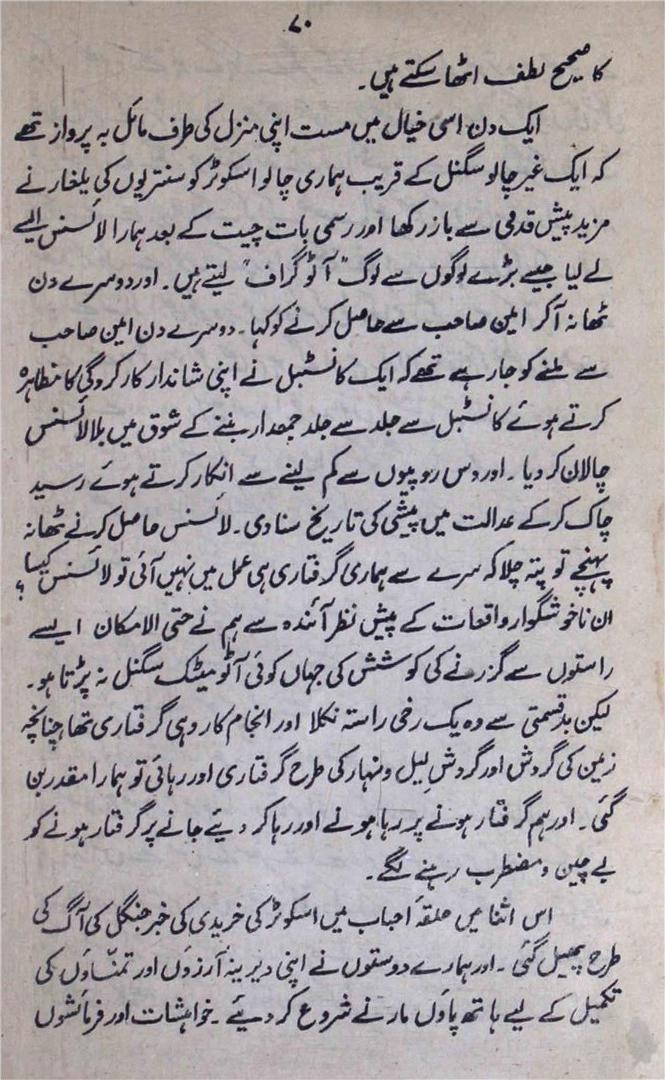 ۷۰
کا صحیح لطف اٹھا سکتے ہیں۔
ایک دن اسی خیال میں مست اپنی منزل کی طرف مائل بہ پرواز تھے
کہ ایک غیر چالو سگنل کے قریب ہماری چالو اسکوٹر کو سنتریوں کی یلغار نے
مزید پیش قدمی سے باز رکھا اور رسمی بات چیت کے بعد ہمارا لائسنس ایسے
لے لیا جیسے بڑے لوگوں سے لوگ "آٹو گراف" لیتے ہیں۔ اور دوسرے دن
تھانہ آکر امین صاحب سے حاصل کرنے کو کہا۔ دوسرے دن امین صاحب
سے ملنے کو جا رہے تھے کہ ایک کانسٹبل نے اپنی شاندار کارکردگی کا مظاہرہ
کرتے ہوئے کانسٹبل سے جلد سے جلد جمعدار بننے کے شوق میں بلا لائسنس
چالان کر دیا۔ اور دس روپیوں سے کم لینے سے انکار کرتے ہوئے رسید
چاک کرکے عدالت میں پیشی کی تاریخ سنا دی۔ لائسنس حاصل کرنے تھانہ
پہنچے تو پتہ چلا کہ سرے سے ہماری گرفتاری ہی عمل میں نہیں آئی تو لائسنس کیسا؟
ان ناخوشگوار واقعات کے پیش نظر آئندہ سے ہم نے حتی الامکان ایسے
راستوں سے گزرنے کی کوشش کی جہاں کوئی آٹومیٹک سگنل نہ پڑتا ہو۔
لیکن بدقسمتی سے وہ یک رخی راستہ نکلا اور انجام کار وہی گرفتاری تھا چنانچہ
زمین کی گردش اور گردشِ لیل و نہار کی طرح گرفتاری اور رہائی تو ہمارا مقدر بن
گئی۔ اور ہم گرفتار ہونے پر رہا ہونے اور رہا کر دیئے جانے پر گرفتار ہونے کو
بے چین و مضطرب رہنے لگے۔
اس اثنا میں حلقۂ احباب میں اسکوٹر کی خریدی کی خبر جنگل کی آگ کی
طرح پھیل گئی۔ اور ہمارے دوستوں نے اپنی دیرینہ آرزوؤں اور تمنّاؤں کی
تکمیل کے لیے ہاتھ پاؤں مارنے شروع کر دیئے۔ خواہشات اور فرمائشوں